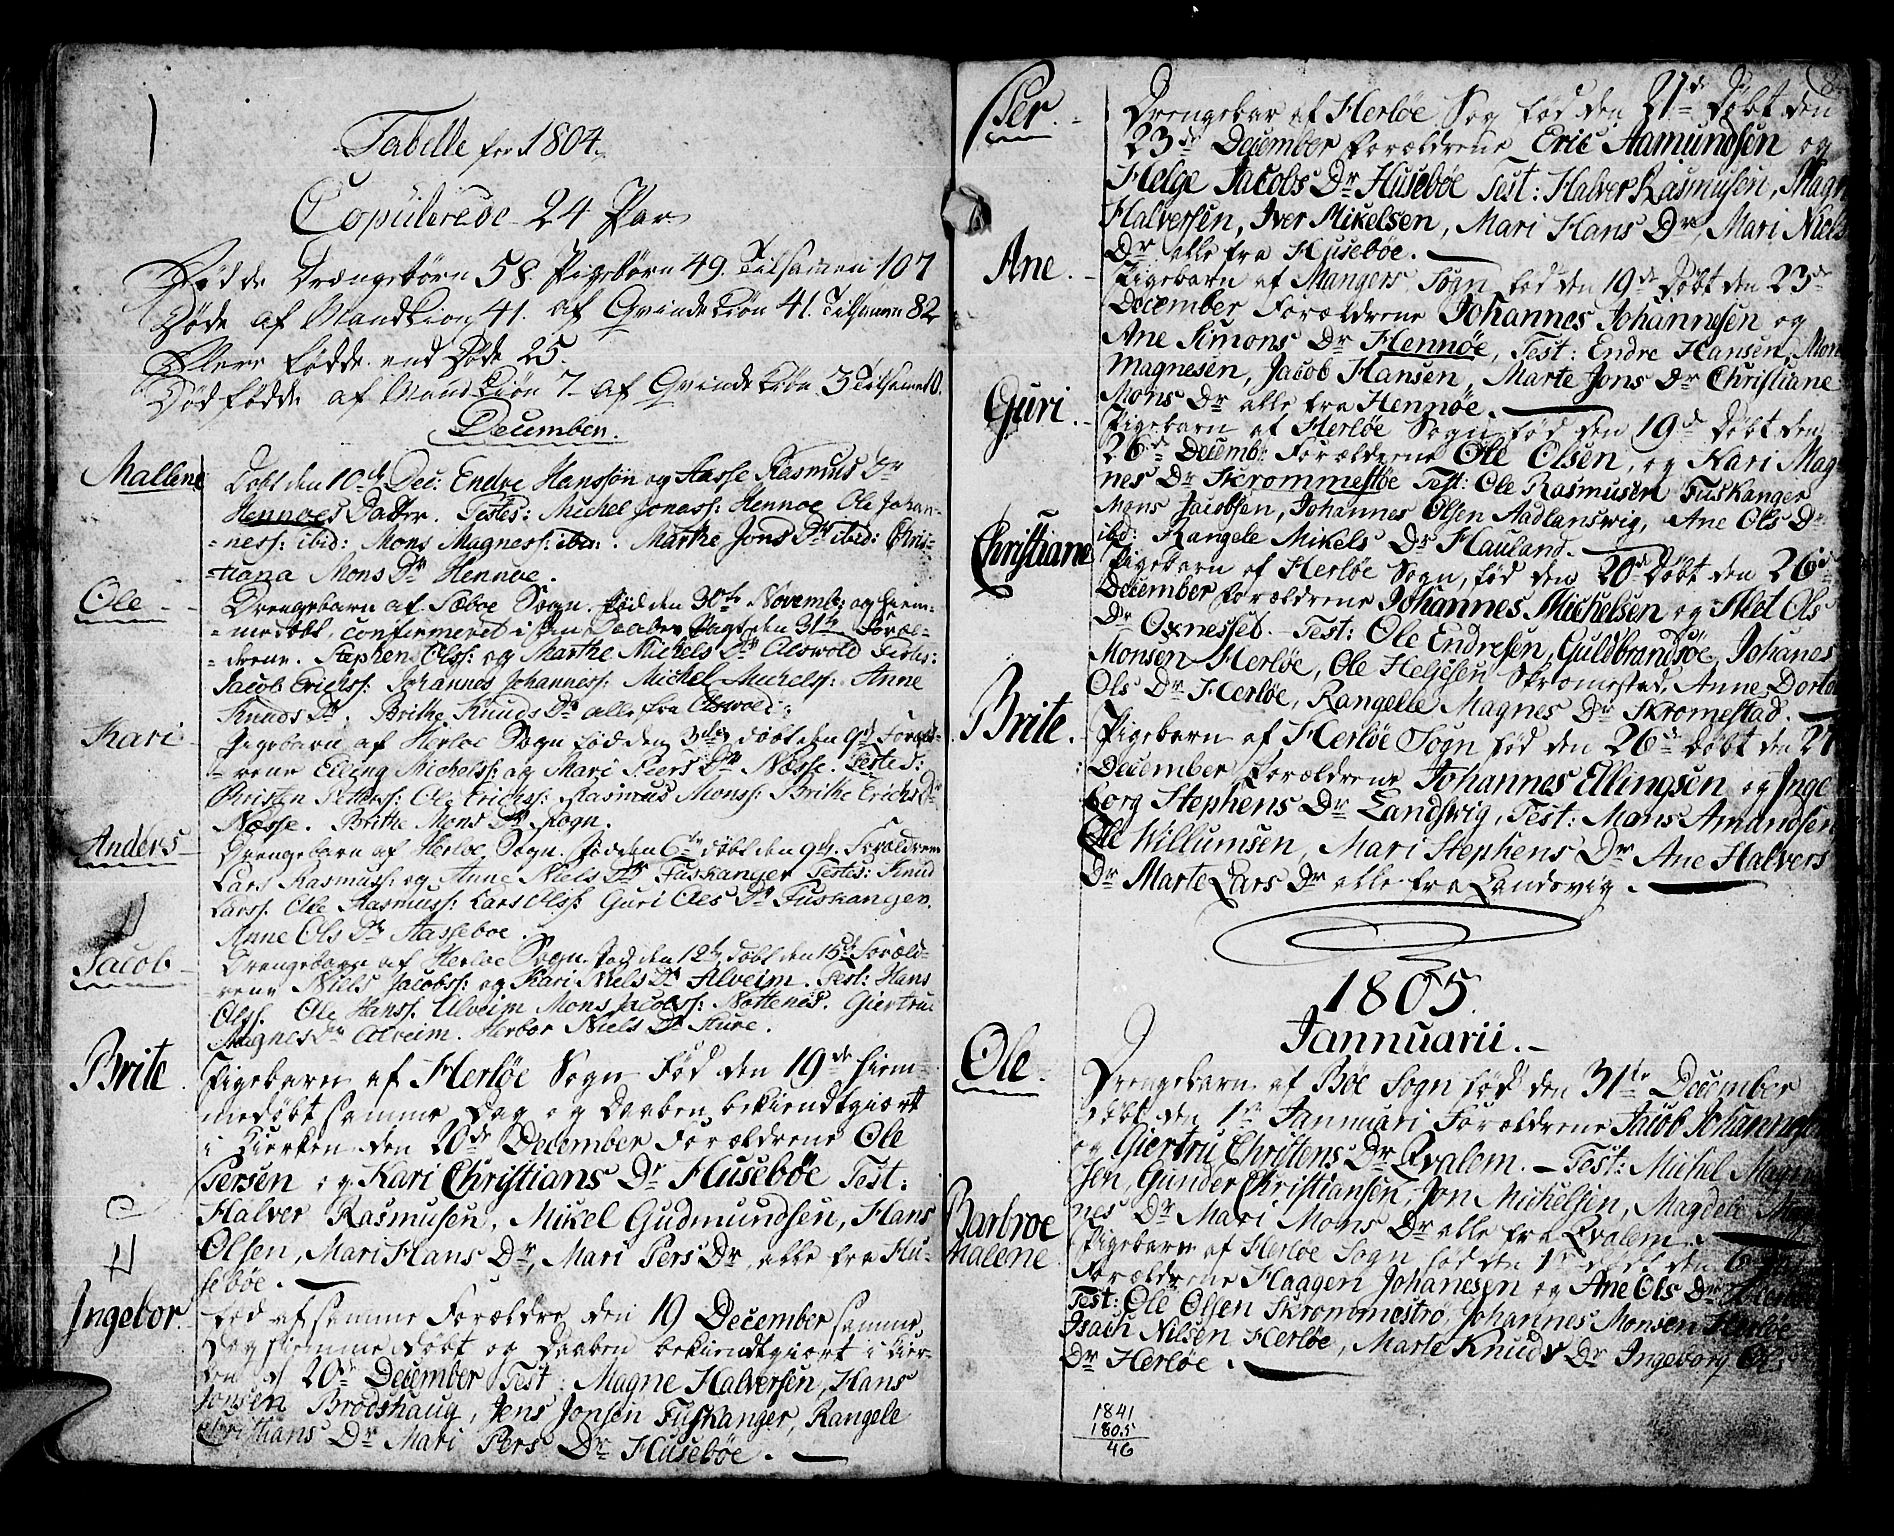 Tabelle for 1804.
Copulerede 24 Par
Födde Drængebörn 58 Pigebörn 49. Tilsamen 107
Döde af Mandkiön 41. af Qvindekiön 41. Tilsamen 82
Flere födde end Döde 25.
Dödfödde af Mandkiön 7 af Qvindekiön 3 Tilsamen 10.
December.
Mallene Döbt den 10de Dec: Endre Hanssön og Aasse Rasmus Dr
Hennoes Datter. Testes: Michel Jonass: Hennoe Ole Johan-
=ness: ibid: Mons Magness: ibid: Marthe Jons Dr ibid: Chris-
=tiana Mons Dr Hennoe.
Ole Drengebarn af Sæboe Sogn. född den 30te Novemb: og hiem-
=medöbt, confirmeret i sin Daabes Pagt den 31te Foræl-
=drene. Stephen Olss: og Marthe Michels Dr Alswold Testes:
Jacob Erichss: Johannes Johanness: Michel Michelss: Anne
Knuds Dr. Brithe Knuds Dr alle fra Alswold.
Kari Pigebarn af Herloe Sogn född den 3die döbt den 9de Foræld-
=rene Elling Michelss: og Mari Peers Dr Næsse. Testes:
Christen Petterss: Ole Erichss: Rasmus Monss: Brithe Erichs Dr
Næsse. Brithe Mons Dr Rogn.
Anders Drengebarn af Herloe Sogn. född den 6te döbt den 9de. Forældrene
Lars Rasmuss: og Anne Niels Dr Fuskanger Testes: Knud
Larss. Ole Rasmuss: Lars Olss: Guri Oles Dr Fuskanger.
Anne Ols Dr Aasseboe.
Jacob Drengebarn af Herloe Sogn född den 12te döbt den 16de Foræld-
rene Niels Jacobss: og Kari Niels Dr Alveim. Test: Hans
Olss. Ole Hanss. Alveim Mons Jacobss: Nottenes. Giertru
Magnes Dr Alveim. Herbor Niels Dr Sture.
Brite Pigebarn af Herlöe Sogn Född den 19de hiem-
medöbt samme Dag og Daaben bekiendtgiort
i Kierken den 20de December Forældrene Ole
Persen og Kari Christians Dr Huseböe Test:
Halver Rasmusen, Mikel Gudmundsen, Hans
Olsen, Mari Hans Dr, Mari Pers Dr, alle fra Hu-
seböe.
Ingebor föd af samme Forældre den 19 December samme
Dag hiemmedöbt og Daaben bekiendtgiort i Kier-
ken d 20de December Test: Magne Halversen, Hans
Jonsen Brodshaug, Jens Jonsen Fuskanger, Rangele
Christians Dr Mari Pers Dr Husebøe.
Per. Drengebar af Herlöe Sog föd den 21de Döbt den
23de December Forældrene Eric Aamundsen og
Helge Jacobs Dr Husebøe Test: Halver Rasmusen, Magn
Halversen, Iver Mikelsen, Mari Hans Dr, Mari Niels
Dr alle fra Husebøe.
Ane. Pigebarn af Mangers Sogn föd den 19de döbt den 23de
December Forældrene Johannes Johannesen og
Ane Simons Dr Hennøe, Test: Endre Hansen, Mon
Magnesen, Jacob Hansen, Marte Jons Dr Christiane
Mons Dr alle fra Hennøe.
Guri. Pigebarn af Herløe Sogn föd den 19de döbt den
26de Decemb: Forældrene Ole Olsen, og Kari Mag-
nes Dr Skrommestöe Test: Ole Rasmusen Fuskanger
Mons Jacobsen, Johannes Olsen Aadlanswig, Ane Ols Dr
ibid: Rangele Mikels Dr Hauland.
Christiane Pigebarn af Herløe Sogn, föd den 20de döbt den 26de
December Forældrene Johannes Michelsen og Alet Ols
Dr Oxnesset. Test: Ole Endresen, Guldbrandsøe, Johanes
Monsen Herløe, Ole Helgesen Skromestad, Anne Dorte
Ols Dr Herløe, Rangelle Magnes Dr Skromestad.
Brite. Pigebarn af Herløe Sogn föd den 26de döbt den 27
December Forældrene Johannes Ellingsen og Inge
borg Stephens Dr Landswig, Test: Mons Amundsen,
Ole Willumsen, Mari Stephens Dr Ane Halvers
Dr Marte Lars Dr alle fra Landsvig.
1805.
Jannuarii.
Ole. Drengebarn af Bøe Sogn föd den 31te December
döbt den 1ste Januari Forældrene Jacob Johannesen
og Giertru Christens Dr Qvalem. Test: Michel Magne
sen, Gunder Christiansen, Jon Michelsen, Magdele Mag
nes Dr Mari Mons Dr alle fra Qvalem.
Barbroe Malene Pigebarn af Herløe Sogn föd den 1ste döbt den 6
Forældrene Haagen Johanesen og Ane Ols Dr
Test: Ole Olsen Skrommestø, Johannes Monsen Herløe
Isach Nilsen Herløe, Marte Knuds Dr Ingeborg Ols
Dr Herløe.
1841
1805
46